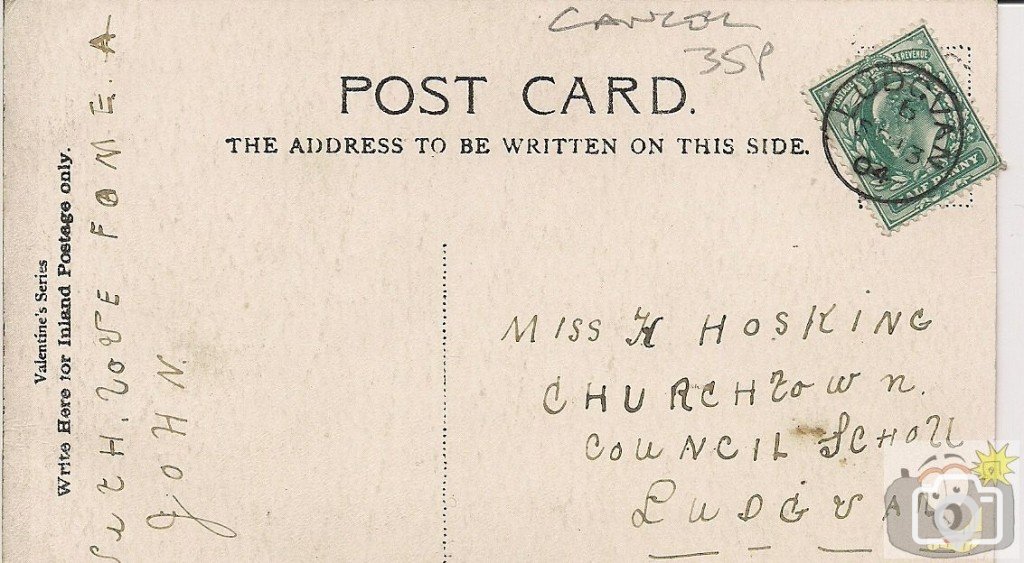 CANCEL
35P
POST CARD.
THE ADDRESS TO BE WRITTEN ON THIS SIDE.
REVENUE
HALFPENNY
LUDGVAN
6
13
04
Valentine's Series
Write Here for Inland Postage only.
WITH LOVE FOME A
JOHN
MISS H HOSKING
CHURCHTOWN.
COUNCIL SCHOLL
LUDGVAN